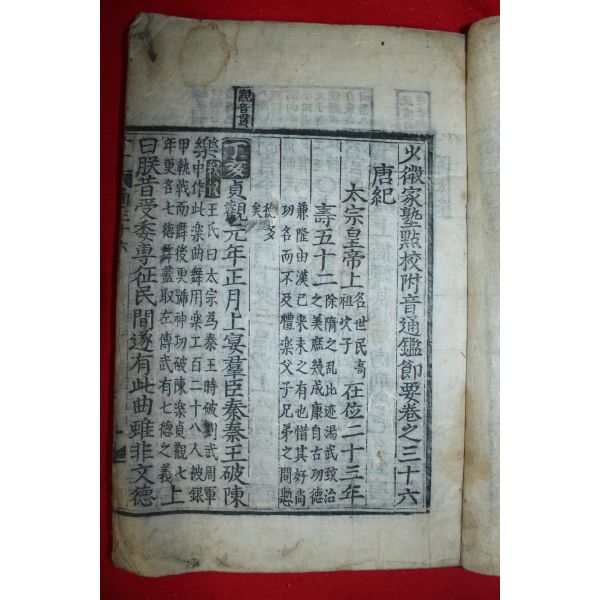 少微家塾點校附音通鑑節要卷之三十六
唐紀
太宗皇帝上
名世民高
祖次子
在位二十三年
壽五十二
除隋之亂比迹湯武致治
之美庶幾成康自古功德
兼隆由漢已来未之有也惜其好尚
功名而不及禮楽父子兄弟之間慙
德多
矣
觀音貫
丁亥貞觀元年正月上宴羣臣奏秦王破陳
樂
王氏曰太宗為秦王時破劉武周軍
中作此楽曲舞用楽工百二十八人被銀
甲執戟而舞後更號神功破陳楽貞觀七
年更名七德舞蓋取左傳武有七德之義
上
曰朕昔受委專征民間遂有此曲雖非文德